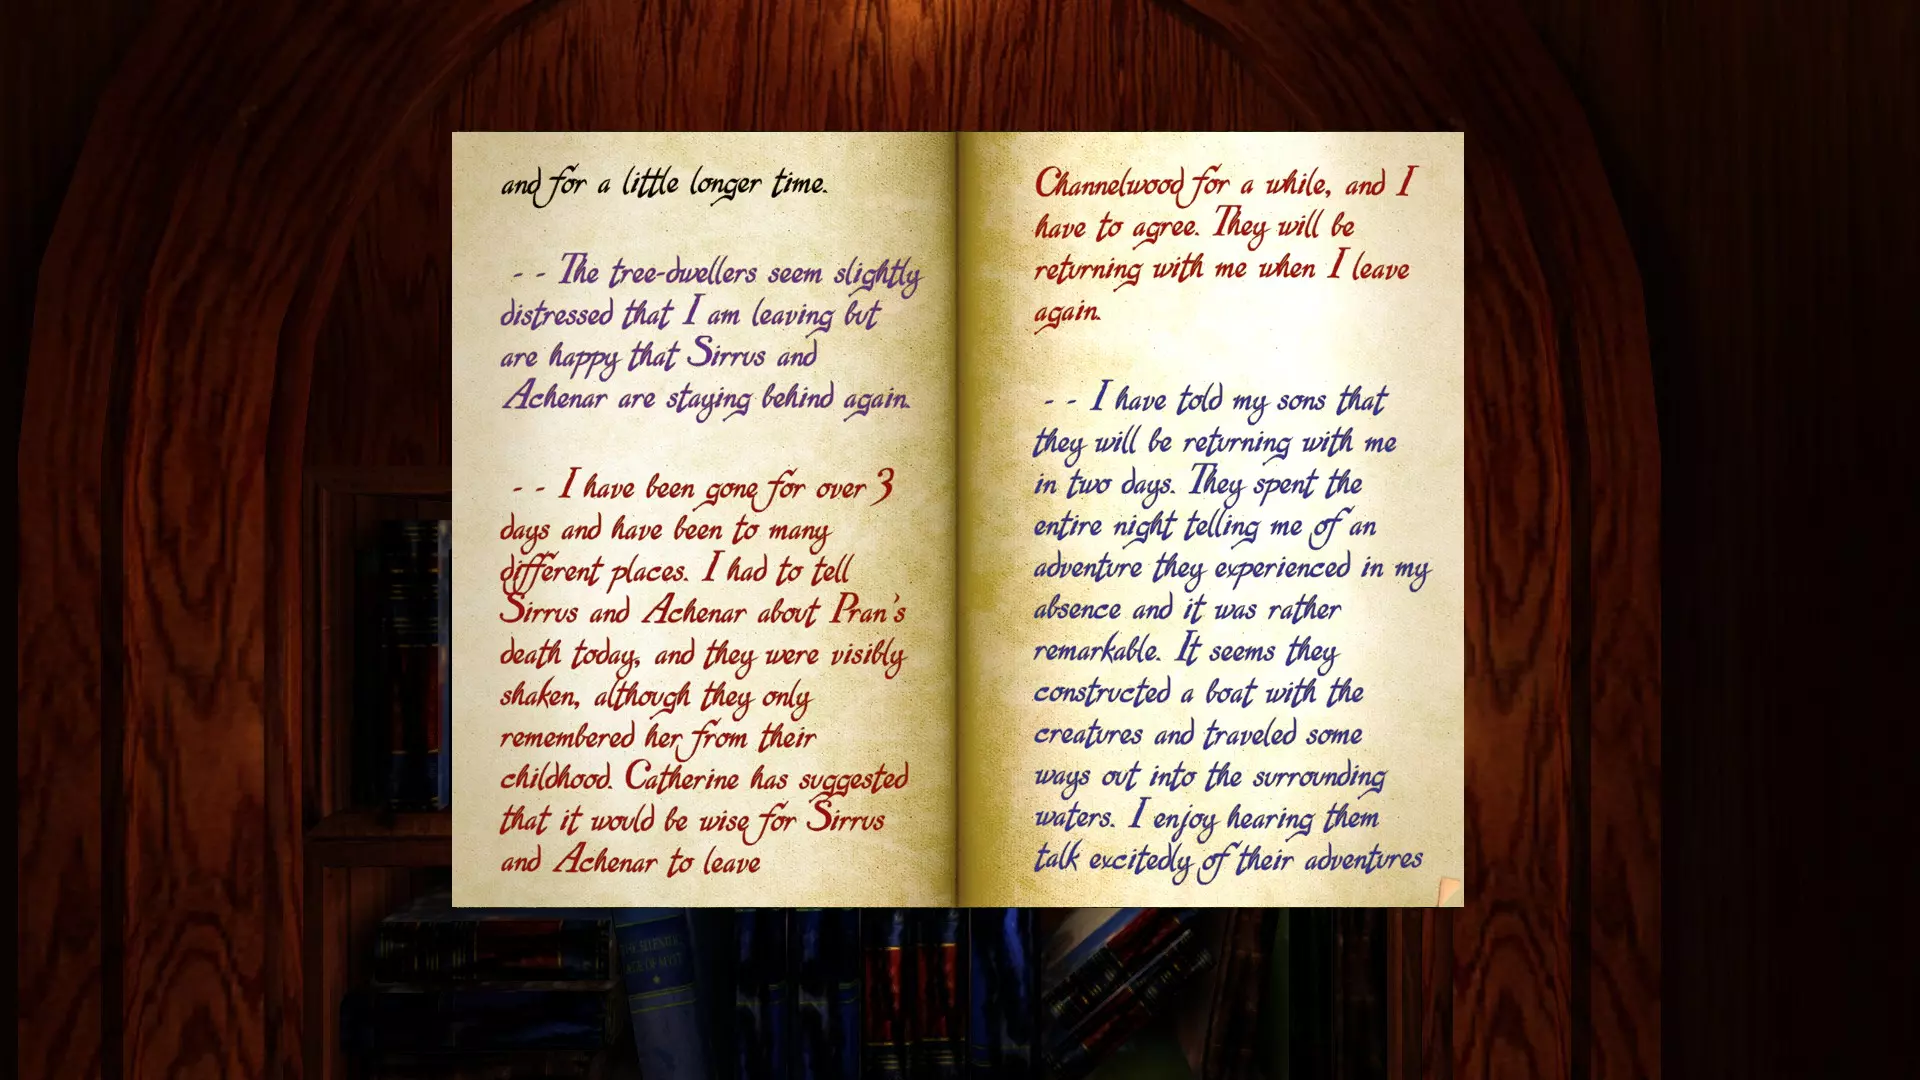 and for a little longer time.
- - The tree-dwellers seem slightly
distressed that I am leaving but
are happy that Sirrus and
Achenar are staying behind again.
- - I have been gone for over 3
days and have been to many
different places. I had to tell
Sirrus and Achenar about Pran's
death today, and they were visibly
shaken, although they only
remembered her from their
childhood. Catherine has suggested
that it would be wise for Sirrus
and Achenar to leave
Channelwood for a while, and I
have to agree. They will be
returning with me when I leave
again.
- - I have told my sons that
they will be returning with me
in two days. They spent the
entire night telling me of an
adventure they experienced in my
absence and it was rather
remarkable. It seems they
constructed a boat with the
creatures and traveled some
ways out into the surrounding
waters. I enjoy hearing them
talk excitedly of their adventures